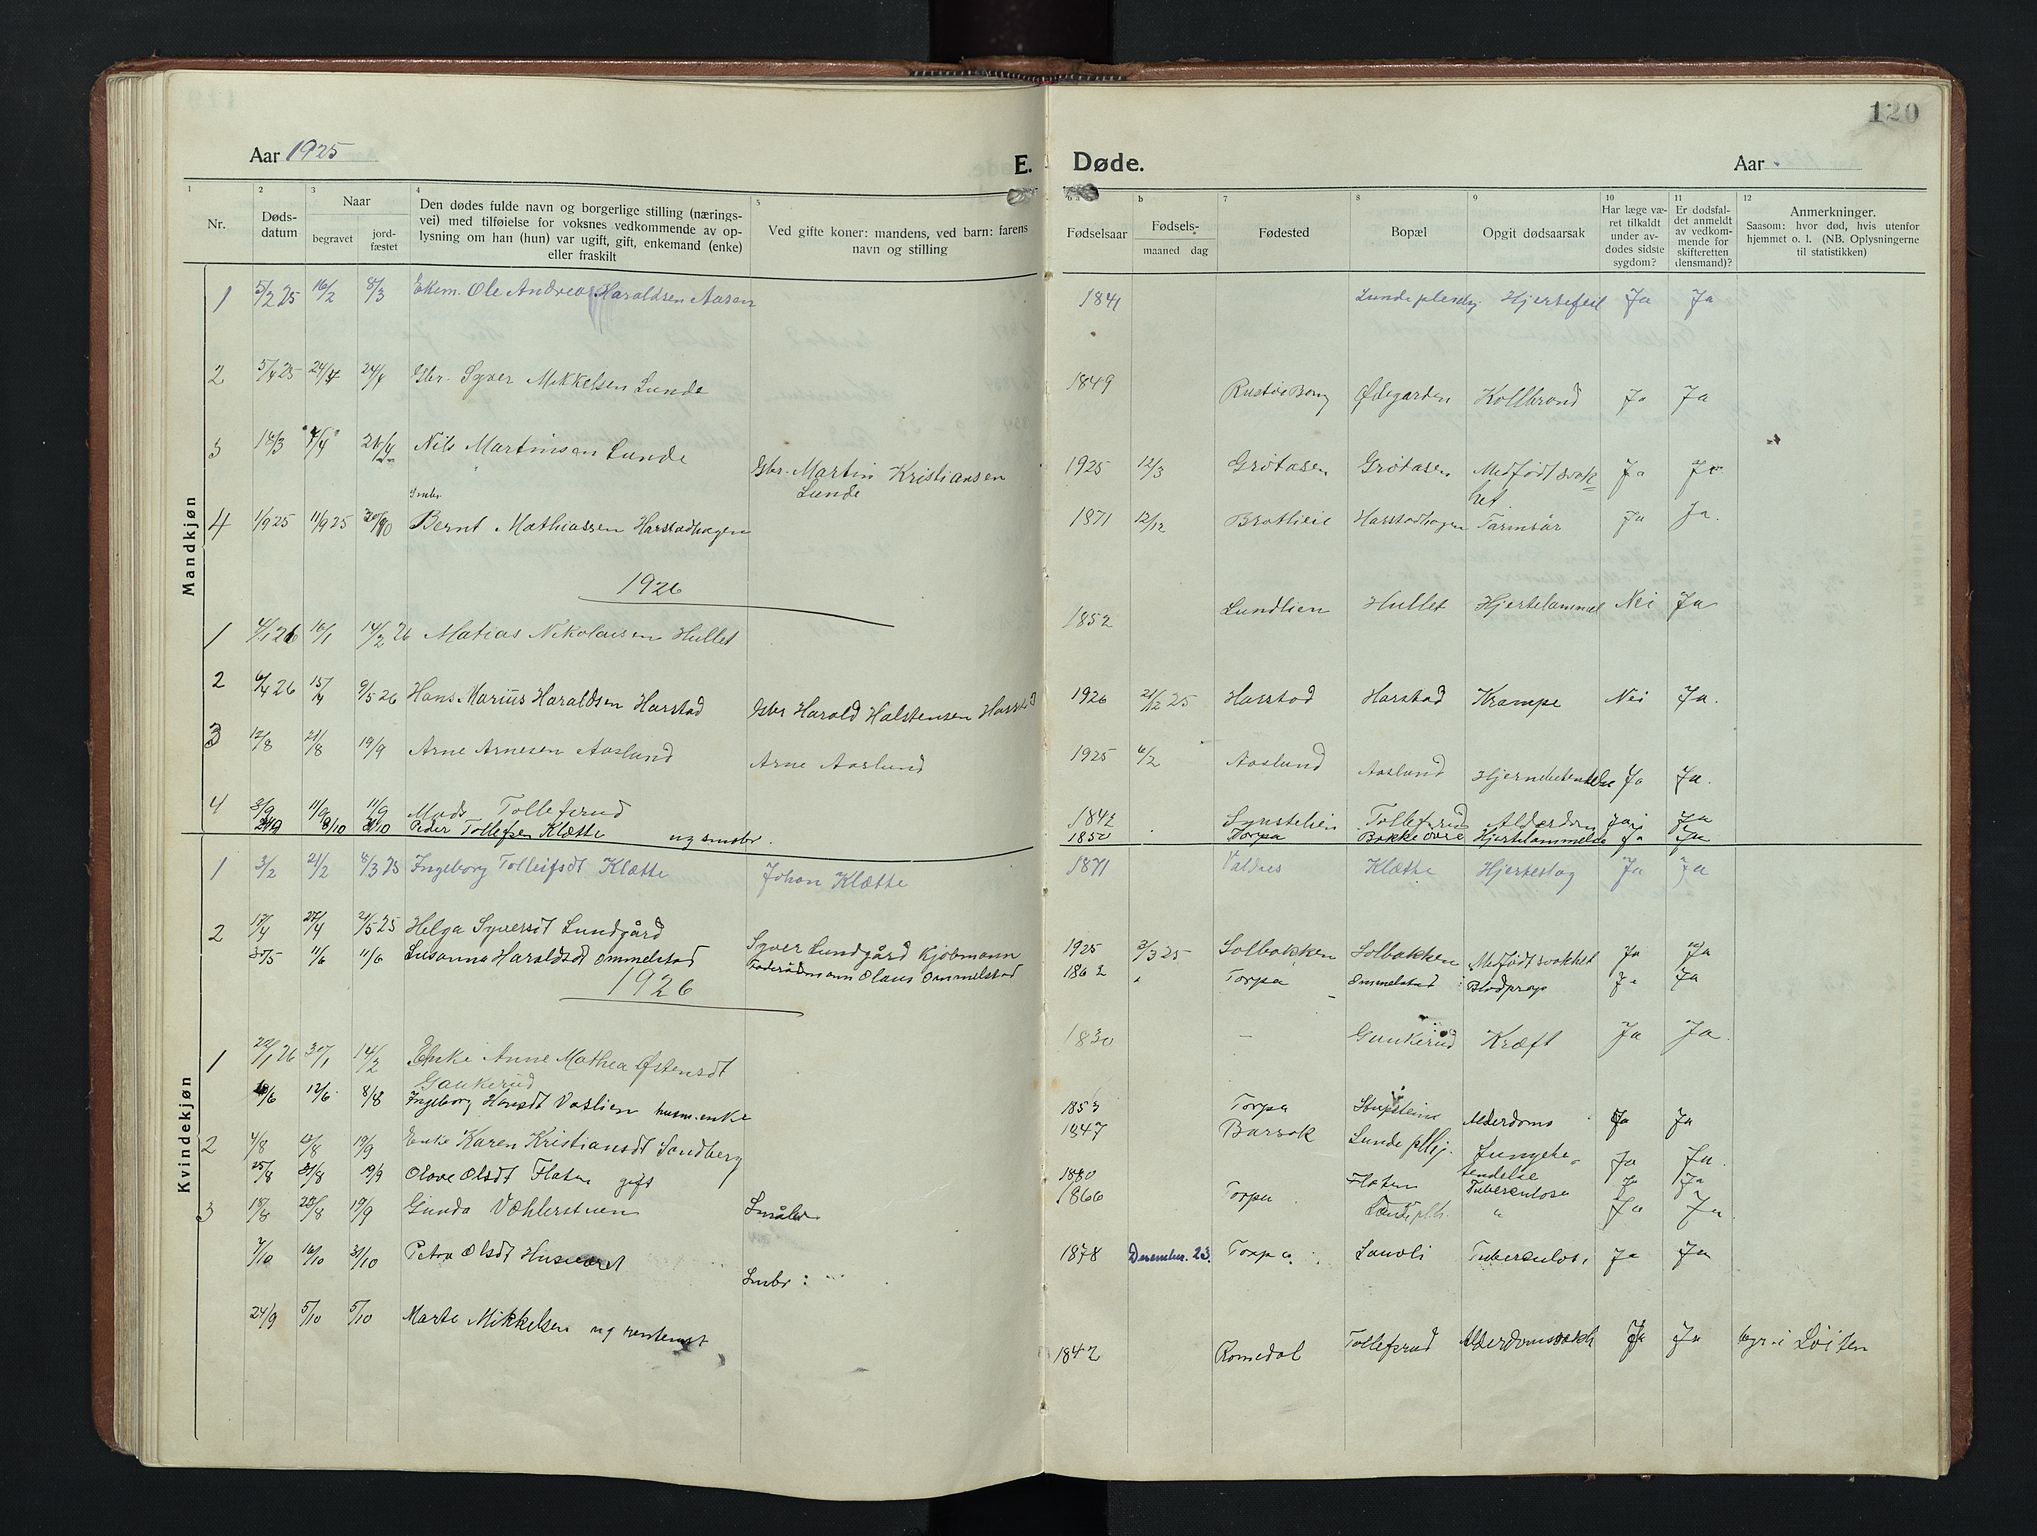 120
Aar 1925
E. Døde.
Aar
1 2 3 4 5 6 b 7 8 9 10 11 12
Nr.
Døds-datum
Naar
begravet
jord-fæstet
Den dødes fulde navn og borgerlige stilling (nærings-
vei) med tilføielse for voksnes vedkommende av op-
lysning om han (hun) var ugift, gift, enkemand (enke)
eller fraskilt
Ved gifte koner: mandens, ved barn: farens
navn og stilling
Fødselsaar
Fødsels-
maaned dag
Fødested
Bopæl
Opgit dødsaarsak
Har læge væ-
ret tilkaldt
under av-
dødes sidste
sygdom?
Er dødsfal-
det anmeldt
av vedkom-
mende for
skifteretten
(lensmand)?
Anmerkninger.
Saasom: hvor død, hvis utenfor
hjemmet o. l. (NB. Oplysningerne
til statistikken)
Mandkjøn
1 5/2 25 16/2 8/3 Ekem. Ole Andreas Haraldsen Aasen 1841 Lunde pleiehj Hjertefeil Ja Ja
2 5/4 25 24/4 24/4 Gbr. Syver Mikkelsen Lunde 1849 Ødegarden Kollbrand Ja Ja
3 18/3 4/4 Nils Martinsen Lunde Gbr. Martin Kristiansen 1925 12/3 Grøtasen Grøtasen Medfødt svak= Ja Ja
Lunde het
Smbr.
4 1/9 25 11/9 25 Bernt Mathiassen Harstadhagen 1871 12/12 Harstadhagen Tarmsår Ja Ja.
1926
1 4/1 26 16/1 14/2 26 Matias Nikolaisen Hullet 1852 Lundlien Hullet Hjertelammel Nei Ja
2 6/4 26 15/4 9/5 26 Hans Marius Haraldsen Harstad Gbr Harald Halstensen 1926 21/12 25 Harstad Harstad Krampe Nei Ja.
3 12/8 21/8 19/9 Arne Arnesen Aaslund Arne Aaslund 1925 6/2 Aaslund Aaslund Hjernebetendelse Ja Ja.
4 3/9 11/9 11/9 Mads Tollefsrud 1842 Synstelien Tollefsrud Alderdom Ja Ja
Peder Tollefsen Klætte ug smbr. 1850 Torpa Bakke øvre Hjertelammelse Ja Ja
Kvindekjøn
1 3/2 21/2 8/3 25 Ingeborg Tolleifsdt Klætte Johan Klætte 1871 Valdres Klætte Hjerteslag Ja Ja
2 17/4 27/4 21/5 25 Helga Syversdt Lundgård Syver Lundgård Kjøbmann 1925 3/3 25 Solbakken Solbakken Medfødt svakhet Ja Ja
30/5 11/6 11/6 Susanna Haraldsdt Ommelstad Føderådsmann Olaus Ommelstad 1862 " Torpa Ommelstad Blodprop Ja Ja
1926
1 22/1 26 30/1 14/2 Enke Anne Mathea Østensdt 1830 – Gaukerud Kræft Ja Ja
Gaukerud
12/6 8/8 Ingeborg Hansdt Vaslien husm. enke 1853 Torpa Alderdoms Ja Ja
2 4/8 19/9 Enke Karen Kristiansdt Sandberg 1847 Lunde plhj. Lungebe- Ja Ja.
tendelse
25/8 31/8 19/9 Olave Olsdt Flaten gift 1880 Flaten Tuberculose Ja Ja
3 18/8 28/8 19/9 Gunda Væhlerstuen Småbr. 1866 Torpa " Ja Ja
7/10 16/10 31/10 Petra Olsdt Smbr: 1878 Desember. 23. Torpa Tuberculose Ja Ja
24/9 5/10 5/10 Marte Mikkelsen ug 1842 Romedal Tollefsrud Alderdomssvakh Ja Ja begr. i Løiten